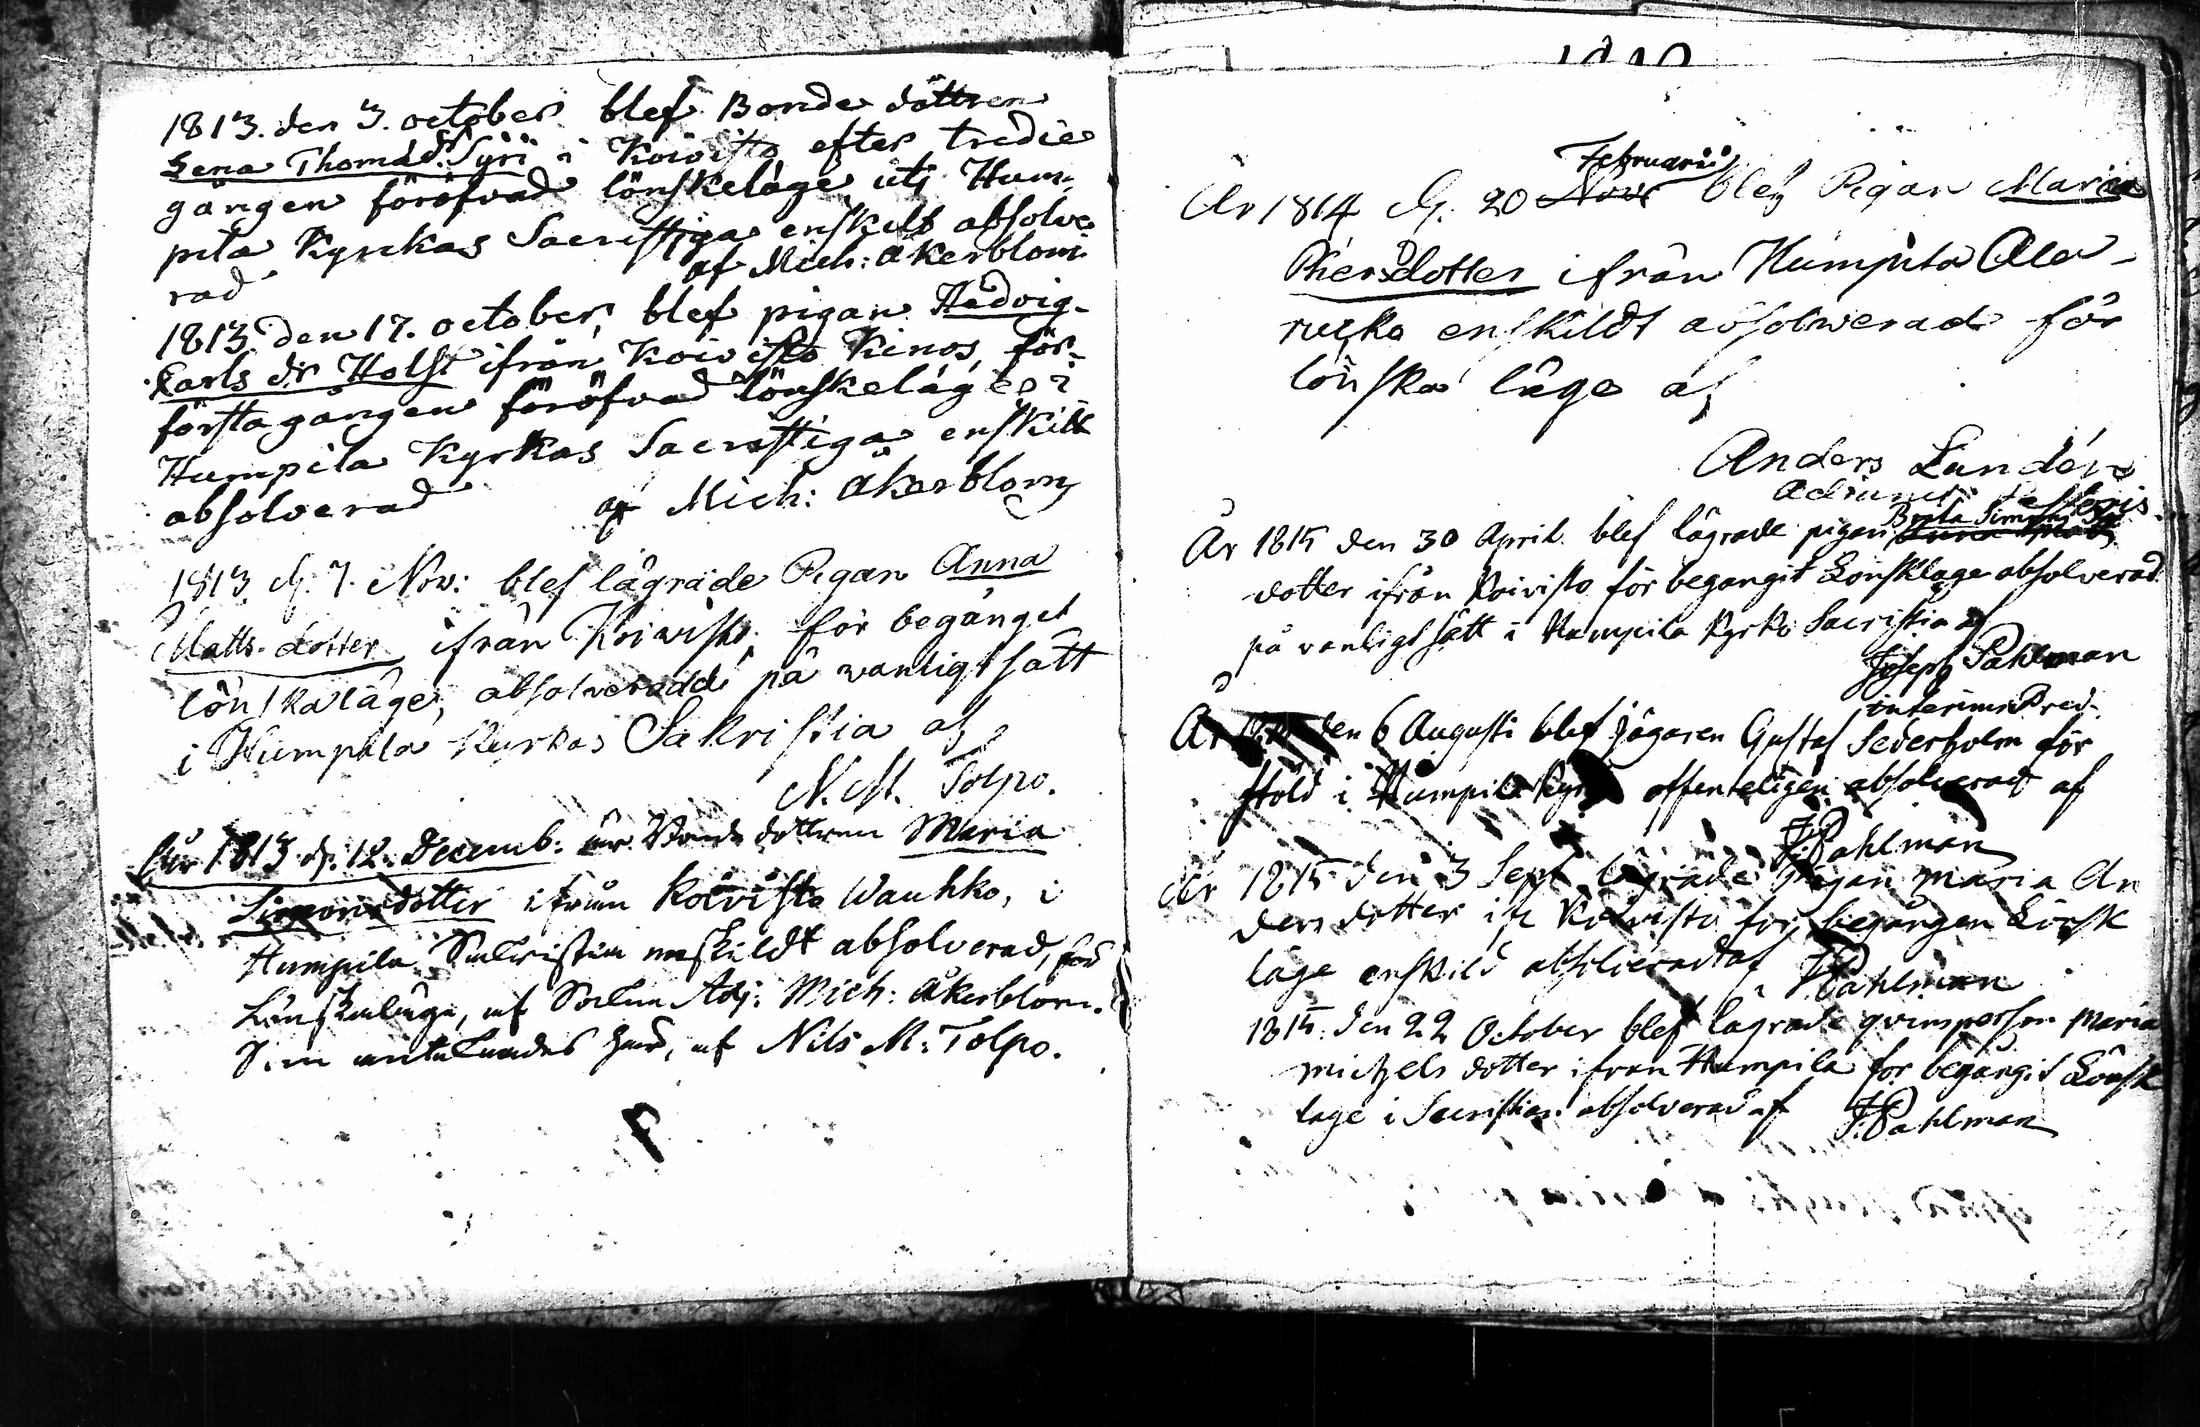 1813. den 3. october blef Bonde döttren
Lena Thomæ dr Syri i Koivisto efter tredie
gången föröfvad lönskeläge uti Hum-
pila Kyrkas Sacristiga enskilt absolve
rad af Mich: Åkerblom
1813 den 17. october, blef pigan Hedvig
Karls dr Holst ifrån Koivisto Kinos, för
första gången föröfvad lönskeläge i
Humpila Kyrkas Sacristiga enskilt
absolverad af Mich: Åkerblom
1813 d. 7. Nov: blef lägrade Pigan Anna
Matts-dotter ifrån Koivisto, för begånget
lönskaläge, absolveradd på wanligt sätt
i Humpila Kyrkas Sakristia af
N. M. Tolpo.
År 1813 d. 12. Decemb: är Bonde dottren Maria
Simonsdotter ifrån Koivisto Wauhko, i
Humpila Sakristia enskildt absolverad, för
Lönskaläge, af Sockne Adj: Mich: Åkerblom.
Som antecknades här, af Nils M: Tolpo.
Februarii
År 1814 d. 20 Nov: blef Pigan Maria
Piersdotter ifrån Humpila Ala-
rucka enskildt absolwerad för
lönska läge af
Anders Lundén
Adjunct.
Brita Simons
År 1815 den 30 April blef lägrade pigan
dotter ifrån Koivisto för begångit Lönskläge absolverad
på vanligt sätt i Humpila Kyrko Sacristia af
Joseph Pahlman
interims Pred.
År den 6 Augusti blef jägaren Gustaf Sederholm för
stöld i Humpila Kyrk offenteligen absolverad af
J. Pahlman
År 1815 den 3 Sept lägrade Pigan Maria An
ders dotter if Koivisto för begången Lönsk
läge enskild absolverad af J Pahlman
1815. den 22 October blef lägrade qvinsperson Maria
Michels dotter ifrån Humpila för begångit Lönsk
läge i Sacristian absolverad af J. Pahlman